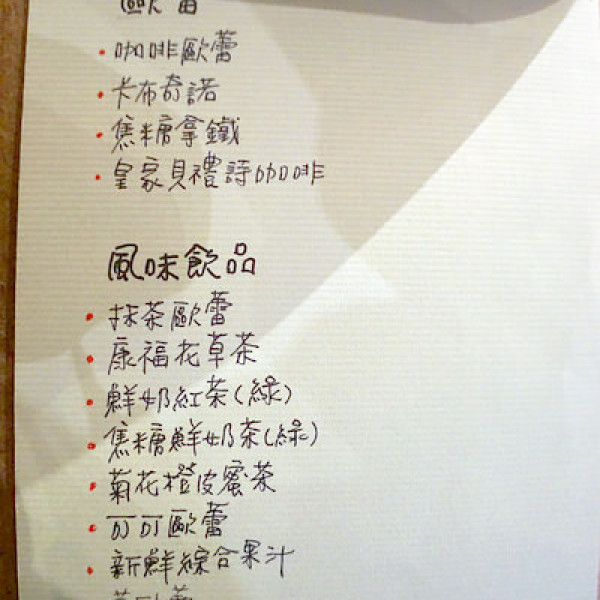 歐蕾
咖啡歐蕾
卡布奇諾
焦糖拿鐵
皇家貝禮詩咖啡
風味飲品
抹茶歐蕾
康福花草茶
鮮奶紅茶(綠)
焦糖鮮奶茶(綠)
菊花橙皮蜜茶
可可歐蕾
新鮮綜合果汁